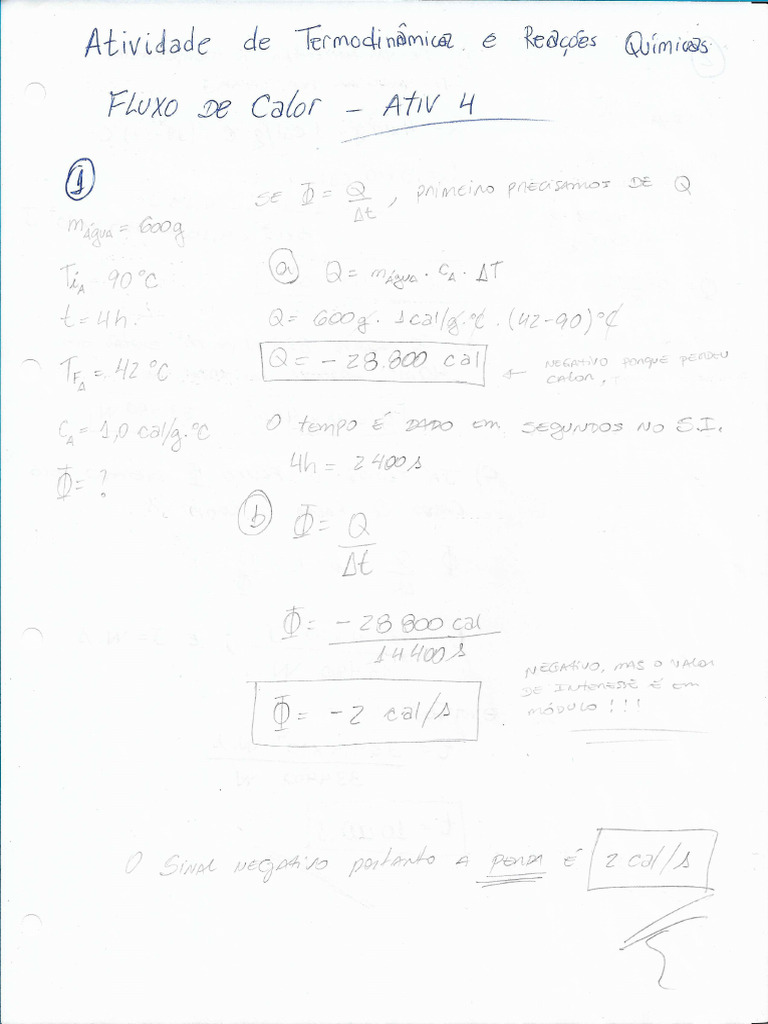 Atividade de Termodinâmica e Reações Químicas
FLUXO DE Calor – ATIV 4
1
SE Φ = Q/Δt, PRIMEIRO PRECISAMOS DE Q
mágua = 600g
TiA = 90°C
t = 4h.
TFA = 42 °C
CA = 1,0 cal/g.°C
Φ = ?
a Q = mágua . CA . ΔT
Q = 600g . 1cal/g.°C . (42-90)°C
Q = - 28.800 cal
← NEGATIVO PORQUE PERDEU
CALOR.
O tempo É DADO Em SEGUNDOS NO S.I.
4h = 2400s
b Φ = Q/Δt
Φ = - 28 800 cal / 14400s
Φ = - 2 cal/s
NEGATIVO, MAS O VALOR
DE INTERESSE É Em
MÓDULO!!!
O SINAL NEGATIVO portanto A PERDA É 2 cal/s